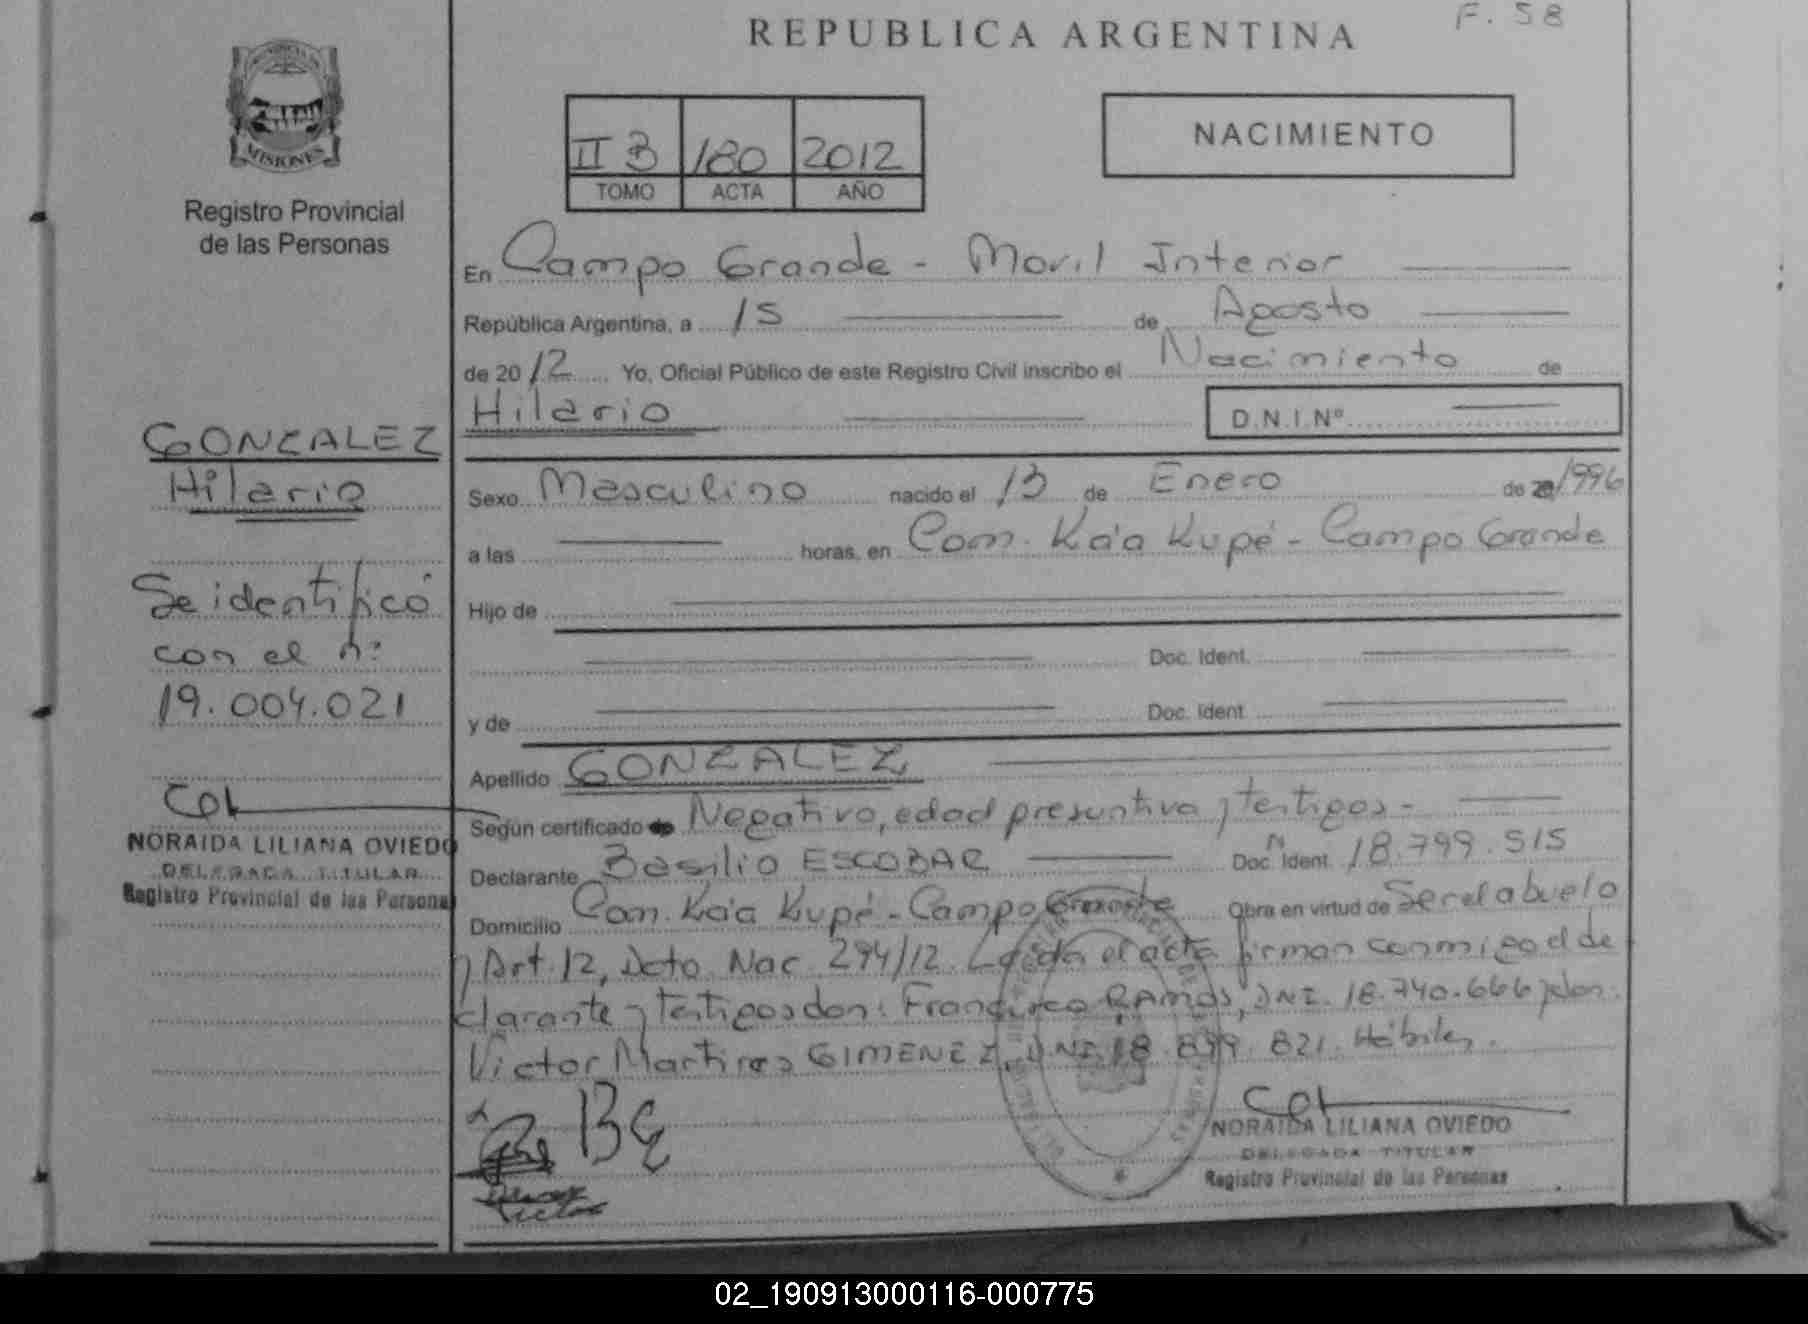 REPUBLICA ARGENTINA
F. 58
MISIONES
Registro Provincial
de las Personas
II B 180 2012
TOMO ACTA AÑO
NACIMIENTO
En Campo Grande - Movil Interior
República Argentina, a 15 de Agosto
de 2012 Yo, Oficial Público de este Registro Civil inscribo el Nacimiento de
Hilario D.N.I.Nº
GONZALEZ
Hilario
Se identificó
con el nº:
19.004.021
NORAIDA LILIANA OVIEDO
DELEGADA TITULAR
Registro Provincial de las Personas
Sexo Masculino nacido el 13 de Enero de 1996
a las horas, en Com. Ka'a Kupé - Campo Grande
Hijo de
Doc. Ident.
y de Doc. Ident.
Apellido GONZALEZ
Según certificado Negativo, edad presuntiva y testigos -
Declarante Basilio ESCOBAR Doc. Ident. 18.799.515
Domicilio Com. Ka'a Kupé - Campo Grande Obra en virtud de Ser el abuelo
y Art. 12, Dcto. Nac. 294/12. Leída el acta firman conmigo el de
clarante y testigos don: Francisco RAMOS, DNI. 18.740.666 y don:
Victor Martires GIMENEZ, DNI. 18.899.821. Hábiles.
NORAIDA LILIANA OVIEDO
DELEGADA TITULAR
Registro Provincial de las Personas
02_190913000116-000775